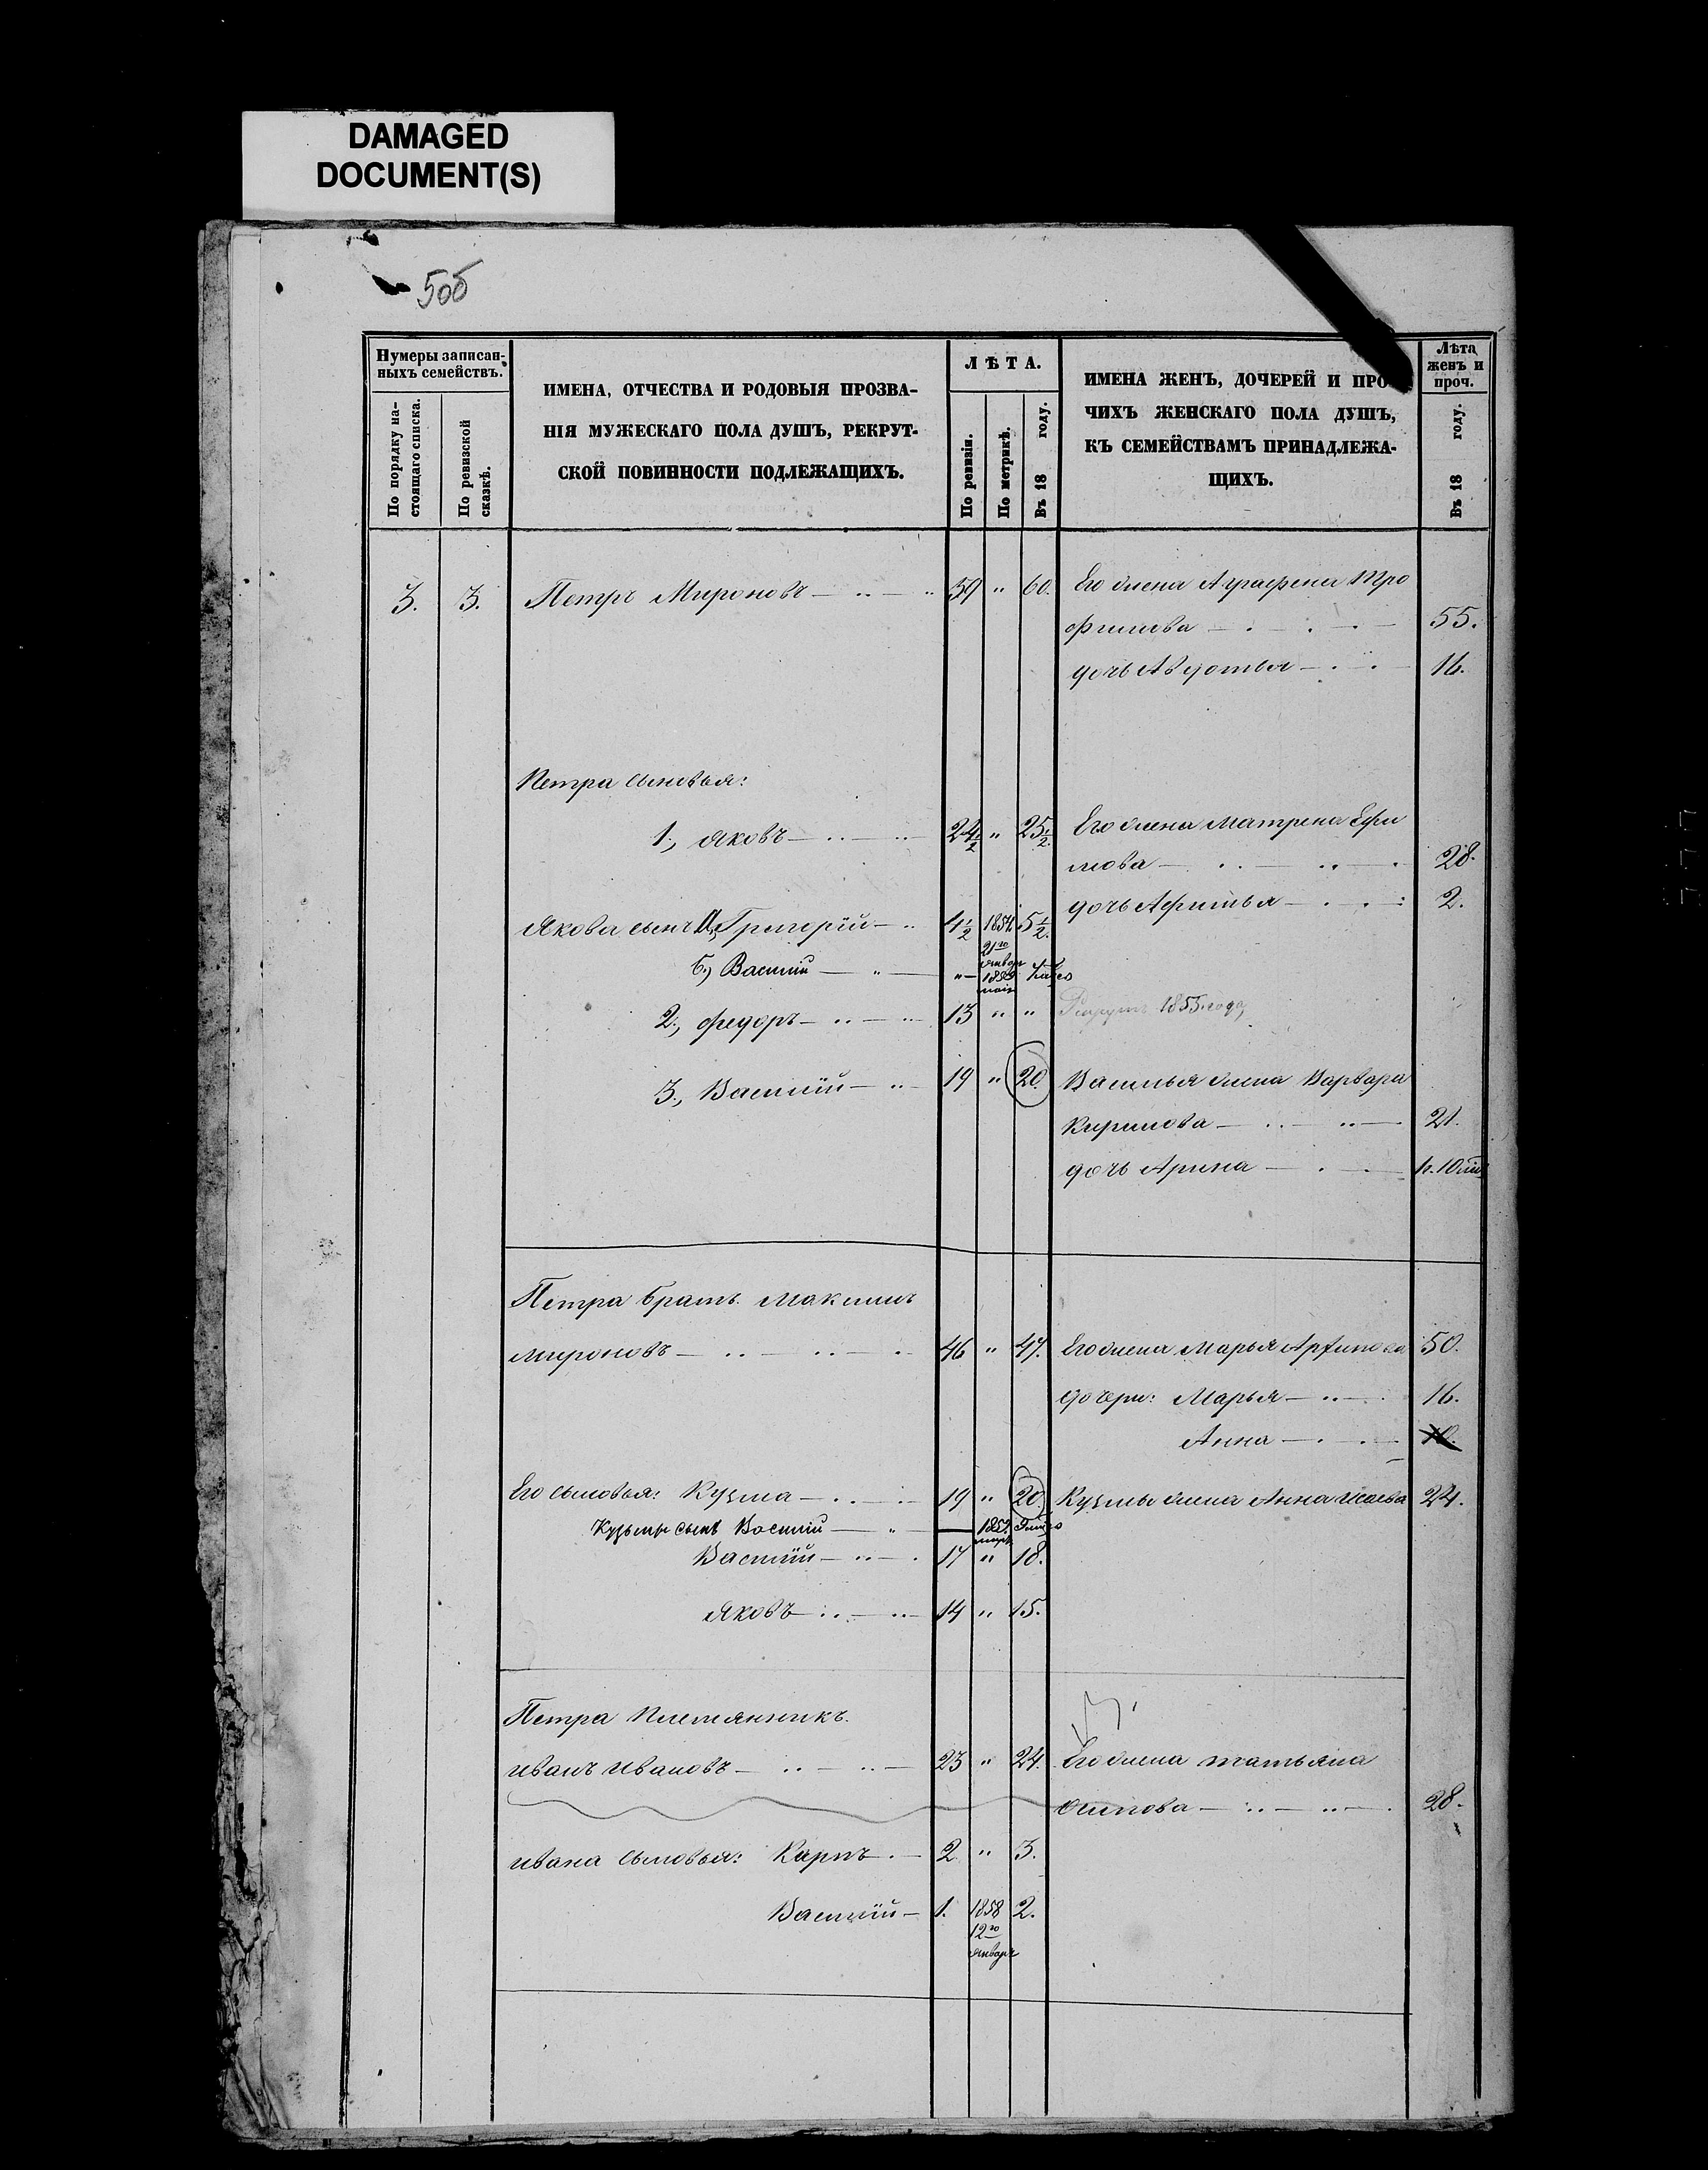 DAMAGED
DOCUMENT(S)
506
Нумеры записан-
ныхъ семействъ.
По порядку на-
стоящаго списка.
По ревизской
сказкѣ.
ИМЕНА, ОТЧЕСТВА И РОДОВЫЯ ПРОЗВА-
НІЯ МУЖЕСКАГО ПОЛА ДУШЪ, РЕКРУТ-
СКОЙ ПОВИННОСТИ ПОДЛЕЖАЩИХЪ.
ЛѢТА.
По ревизіи.
По метрикѣ.
Въ 18 году.
ИМЕНА ЖЕНЪ, ДОЧЕРЕЙ И ПРО-
ЧИХЪ ЖЕНСКАГО ПОЛА ДУШЪ,
КЪ СЕМЕЙСТВАМЪ ПРИНАДЛЕЖА-
ЩИХЪ.
Лѣта
женъ и
проч.
Въ 18 году.
3. 3. Петръ Мироновъ 59 " 60. Его жена Аграфена Тро
фимова 55.
дочь Авдотья 16.
Петра сыновья:
1, Яковъ 24 1/2 " 25 1/2. Его жена Матрена Ефи
мова 28.
дочь Афимья 2.
Якова сынъ а, Григорій 4 1/2 1854 5 1/2.
21го
январ
б,) Василій " 1859
2, Федоръ 13 " " Рекрут. 1855. года
3, Василій 19 " 20. Василья жена Варвара
Кирилова 21.
дочь Арина
Петра братъ Максимъ
Мироновъ 46 " 47. Его жена Марья 50.
дочери: Марья 16.
Анна 10.
Его сыновья: Кузма 19 " 20. Кузмы жена Анна Исаева 24.
Кузьмы сынъ Василій
Василій 17 " 18.
Яковъ 14 " 15.
Петра Племянникъ
Иванъ Ивановъ 23 " 24. Его жена Татьяна
Осипова 28.
Ивана сыновья: Карпъ 2 " 3.
Василій 1. 1858 2.
12го
январь